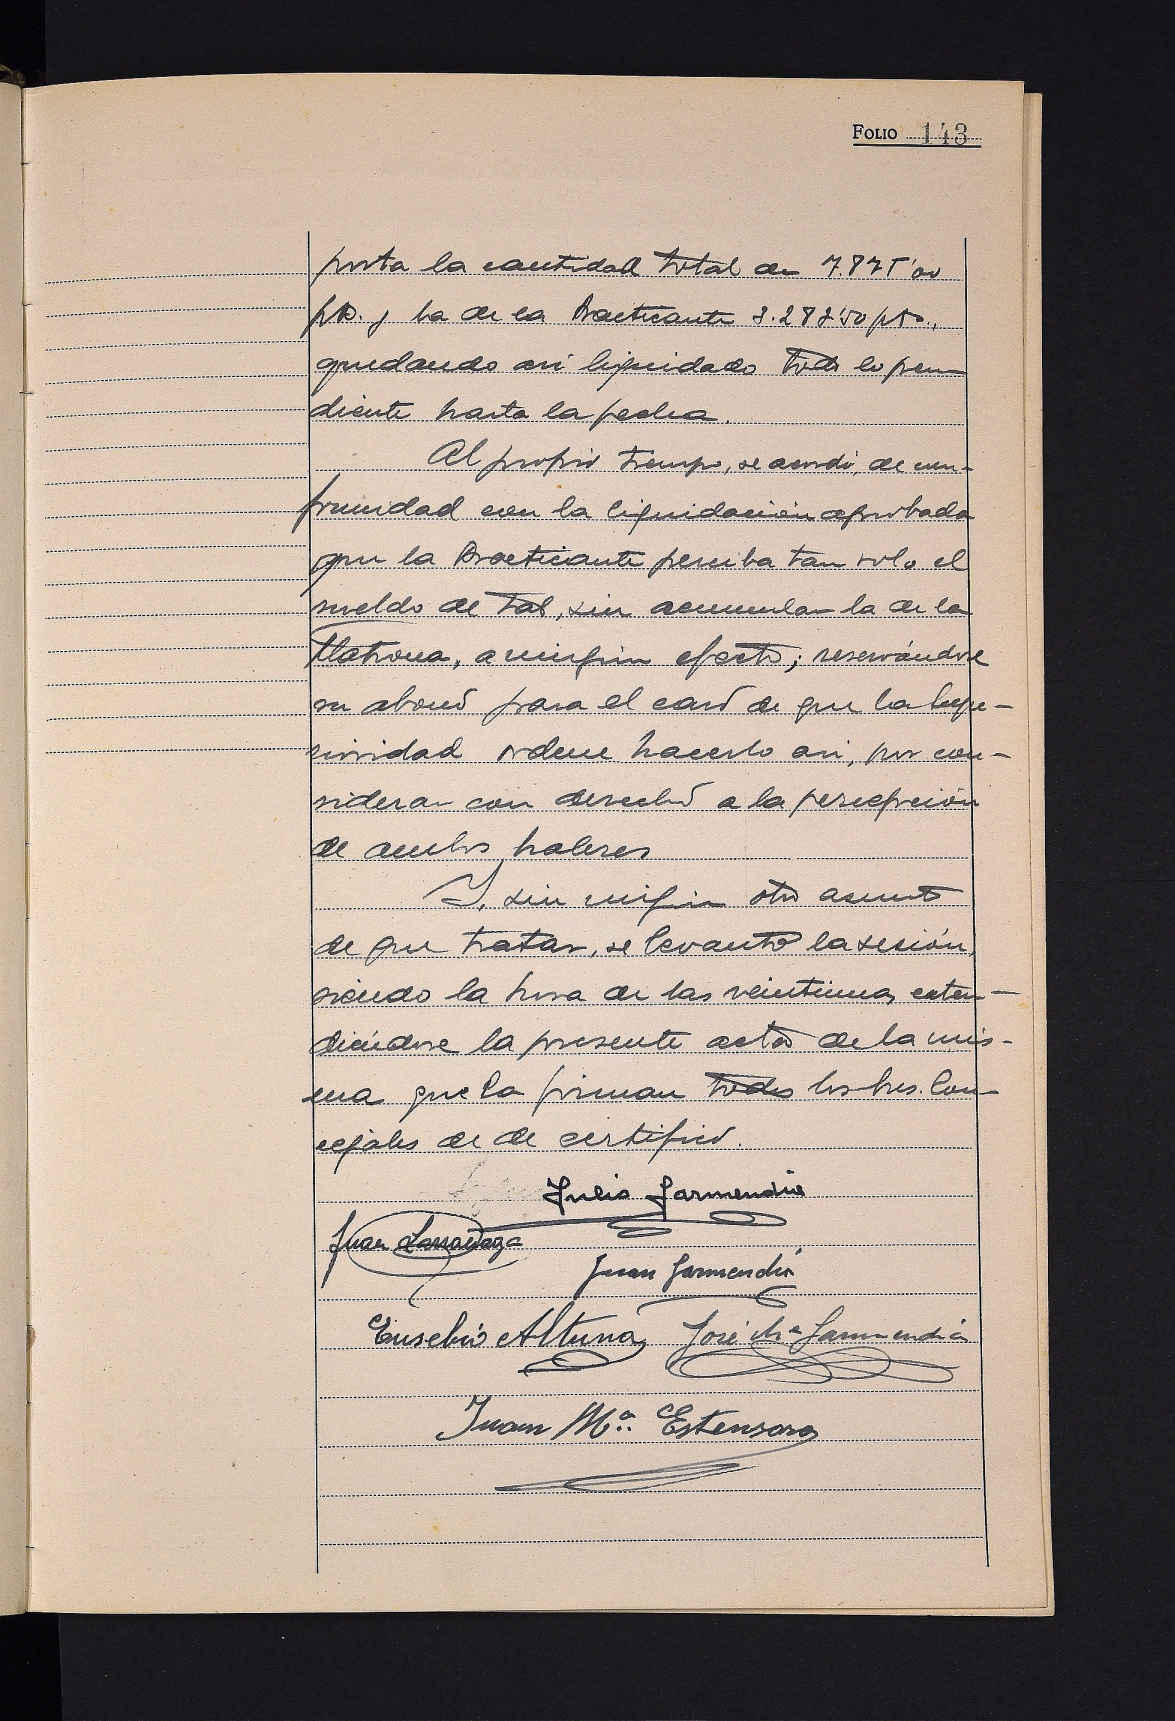 FOLIO 143
porta la cantidad total de 7.875'00
pts. y la de la Practicante 3.283'50 pts.,
quedando asi liquidado todo lo pen
diente hasta la fecha.
Al propio tiempo, se acordó, de con-
formidad con la liquidación aprobada
que la Practicante perciba tan solo el
sueldo de tal, sin acumular la de la
Matrona, a ningún efecto; reservándose
su abono para el caso de que la Supe-
rioridad ordene hacerlo asi, por con-
siderar con derecho a la percepción
de ambos haberes
Y, sin ningún otro asunto
de que tratar, se levantó la sesión,
siendo la hora de las veintiuna, exten-
diéndose la presente acta de la mis-
ma que la firman todos los Sres. Con-
cejales de de certifico.
Julio Garmendia
Juan Larrañaga
Juan Garmendia
Eusebio Altuna José Mª Garmendia
Juan Mª. Estensoro